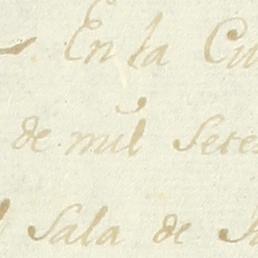 En la Ciu
de mil sete
Sala de